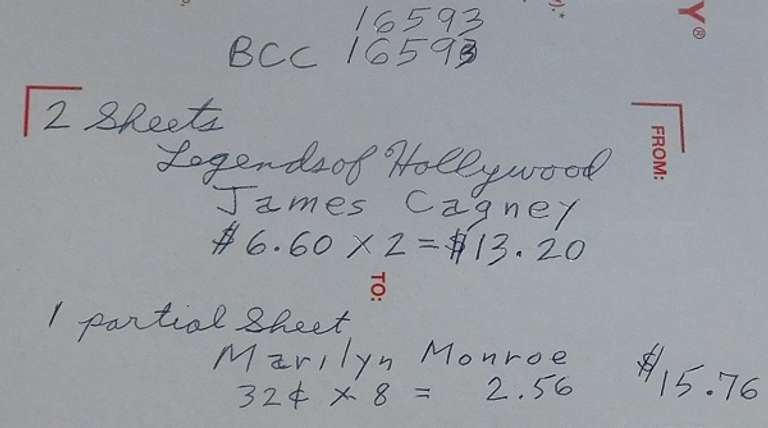 16593
BCC 16593
2 Sheets
Legends of Hollywood
James Cagney
$6.60 x 2 = $13.20
1 partial Sheet
Marilyn Monroe
32¢ x 8 = 2.56 $15.76
Y®
).*
FROM:
TO: